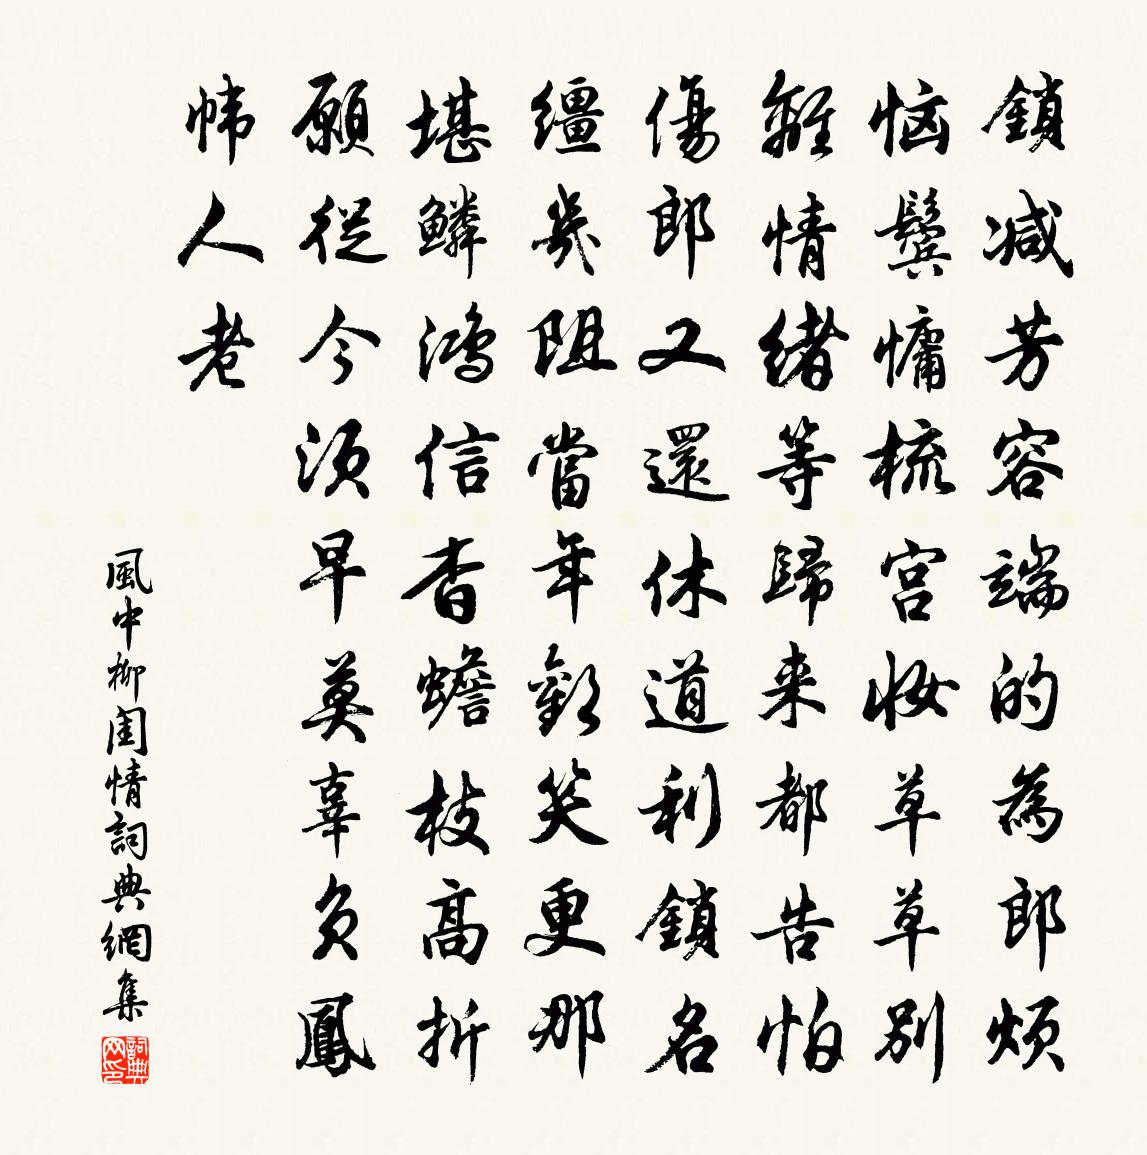 鎖减芳容端的為郎煩
恼鬓慵梳宫妆草草别
離情緒等歸来都告怕
傷郎又還休道利鎖名
繮幾阻當年歡笑更那
堪鱗鴻信杳蟾枝高折
願從今須早莫辜負鳳
幃人老
風中柳閨情詞典網集
詞典网印